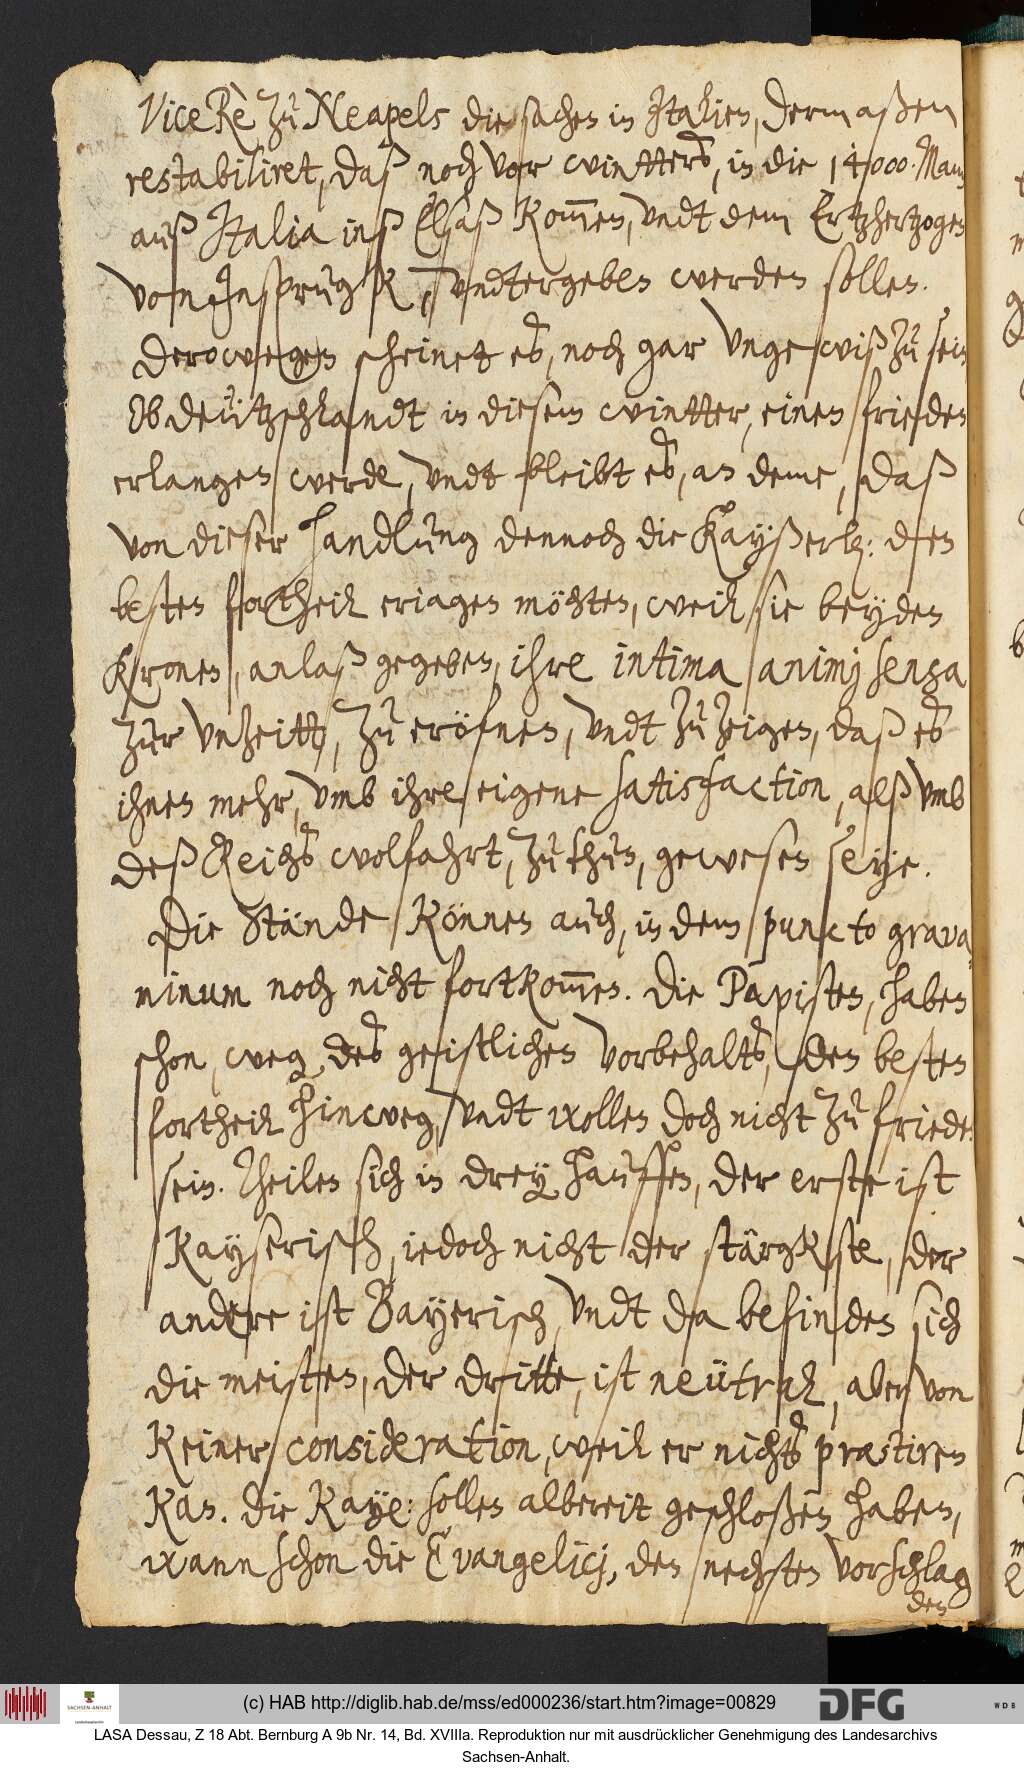 Vice Rè zu Neapels die sachen in Italien, dermaßen
restabiliret, daß noch vor wintters, in die 14000 Mann
auß Italia inß Elsaß kommen, vndt dem Ertzhertzogen
von Insprugk, vndtergeben werden sollen.
Derowegen scheinet es, noch gar vngewiß zu sein
Ob deützschlandt in diesem wintter, einen frieden
erlangen werde, vndt bleibt es, an deme, daß
von dieser handlung dennoch die Kayßerl: den
besten fortheil eriagen möchten, weil sie beyden
Kronen, anlaß gegeben, ihre intima animj sensa
zur vnzeitt, zu eröfnen, vndt zu zeigen, daß es
ihnen mehr, vmb ihre eigene satisfaction, alß vmb
deß Reichs wolfahrt, zu thun, gewesen seye.
Die Stände können auch, in dem puncto grava-
minum noch nicht fortkommen. Die Papisten, haben
schon, weg des geistlichen vorbehalts, den besten
fortheil hinweg, vndt wollen doch nicht zu frieden
sein. Theilen sich in drey hauffen, der erste ist
Kayserisch, iedoch nicht der stärgkste, der
andere ist Bayerisch, vndt da befinden sich
die meisten, der dritte, ist neütral, aber von
keiner consideration, weil er nichts præstiren
kan. Die Kaye: sollen albereit geschloßen haben,
wann schon die Evangelicj, den nechsten vorschlag
den
(c) HAB http://diglib.hab.de/mss/ed000236/start.htm?image=00829
SACHSEN-ANHALT
DFG
HAB
LASA Dessau, Z 18 Abt. Bernburg A 9b Nr. 14, Bd. XVIIIa. Reproduktion nur mit ausdrücklicher Genehmigung des Landesarchivs
Sachsen-Anhalt.